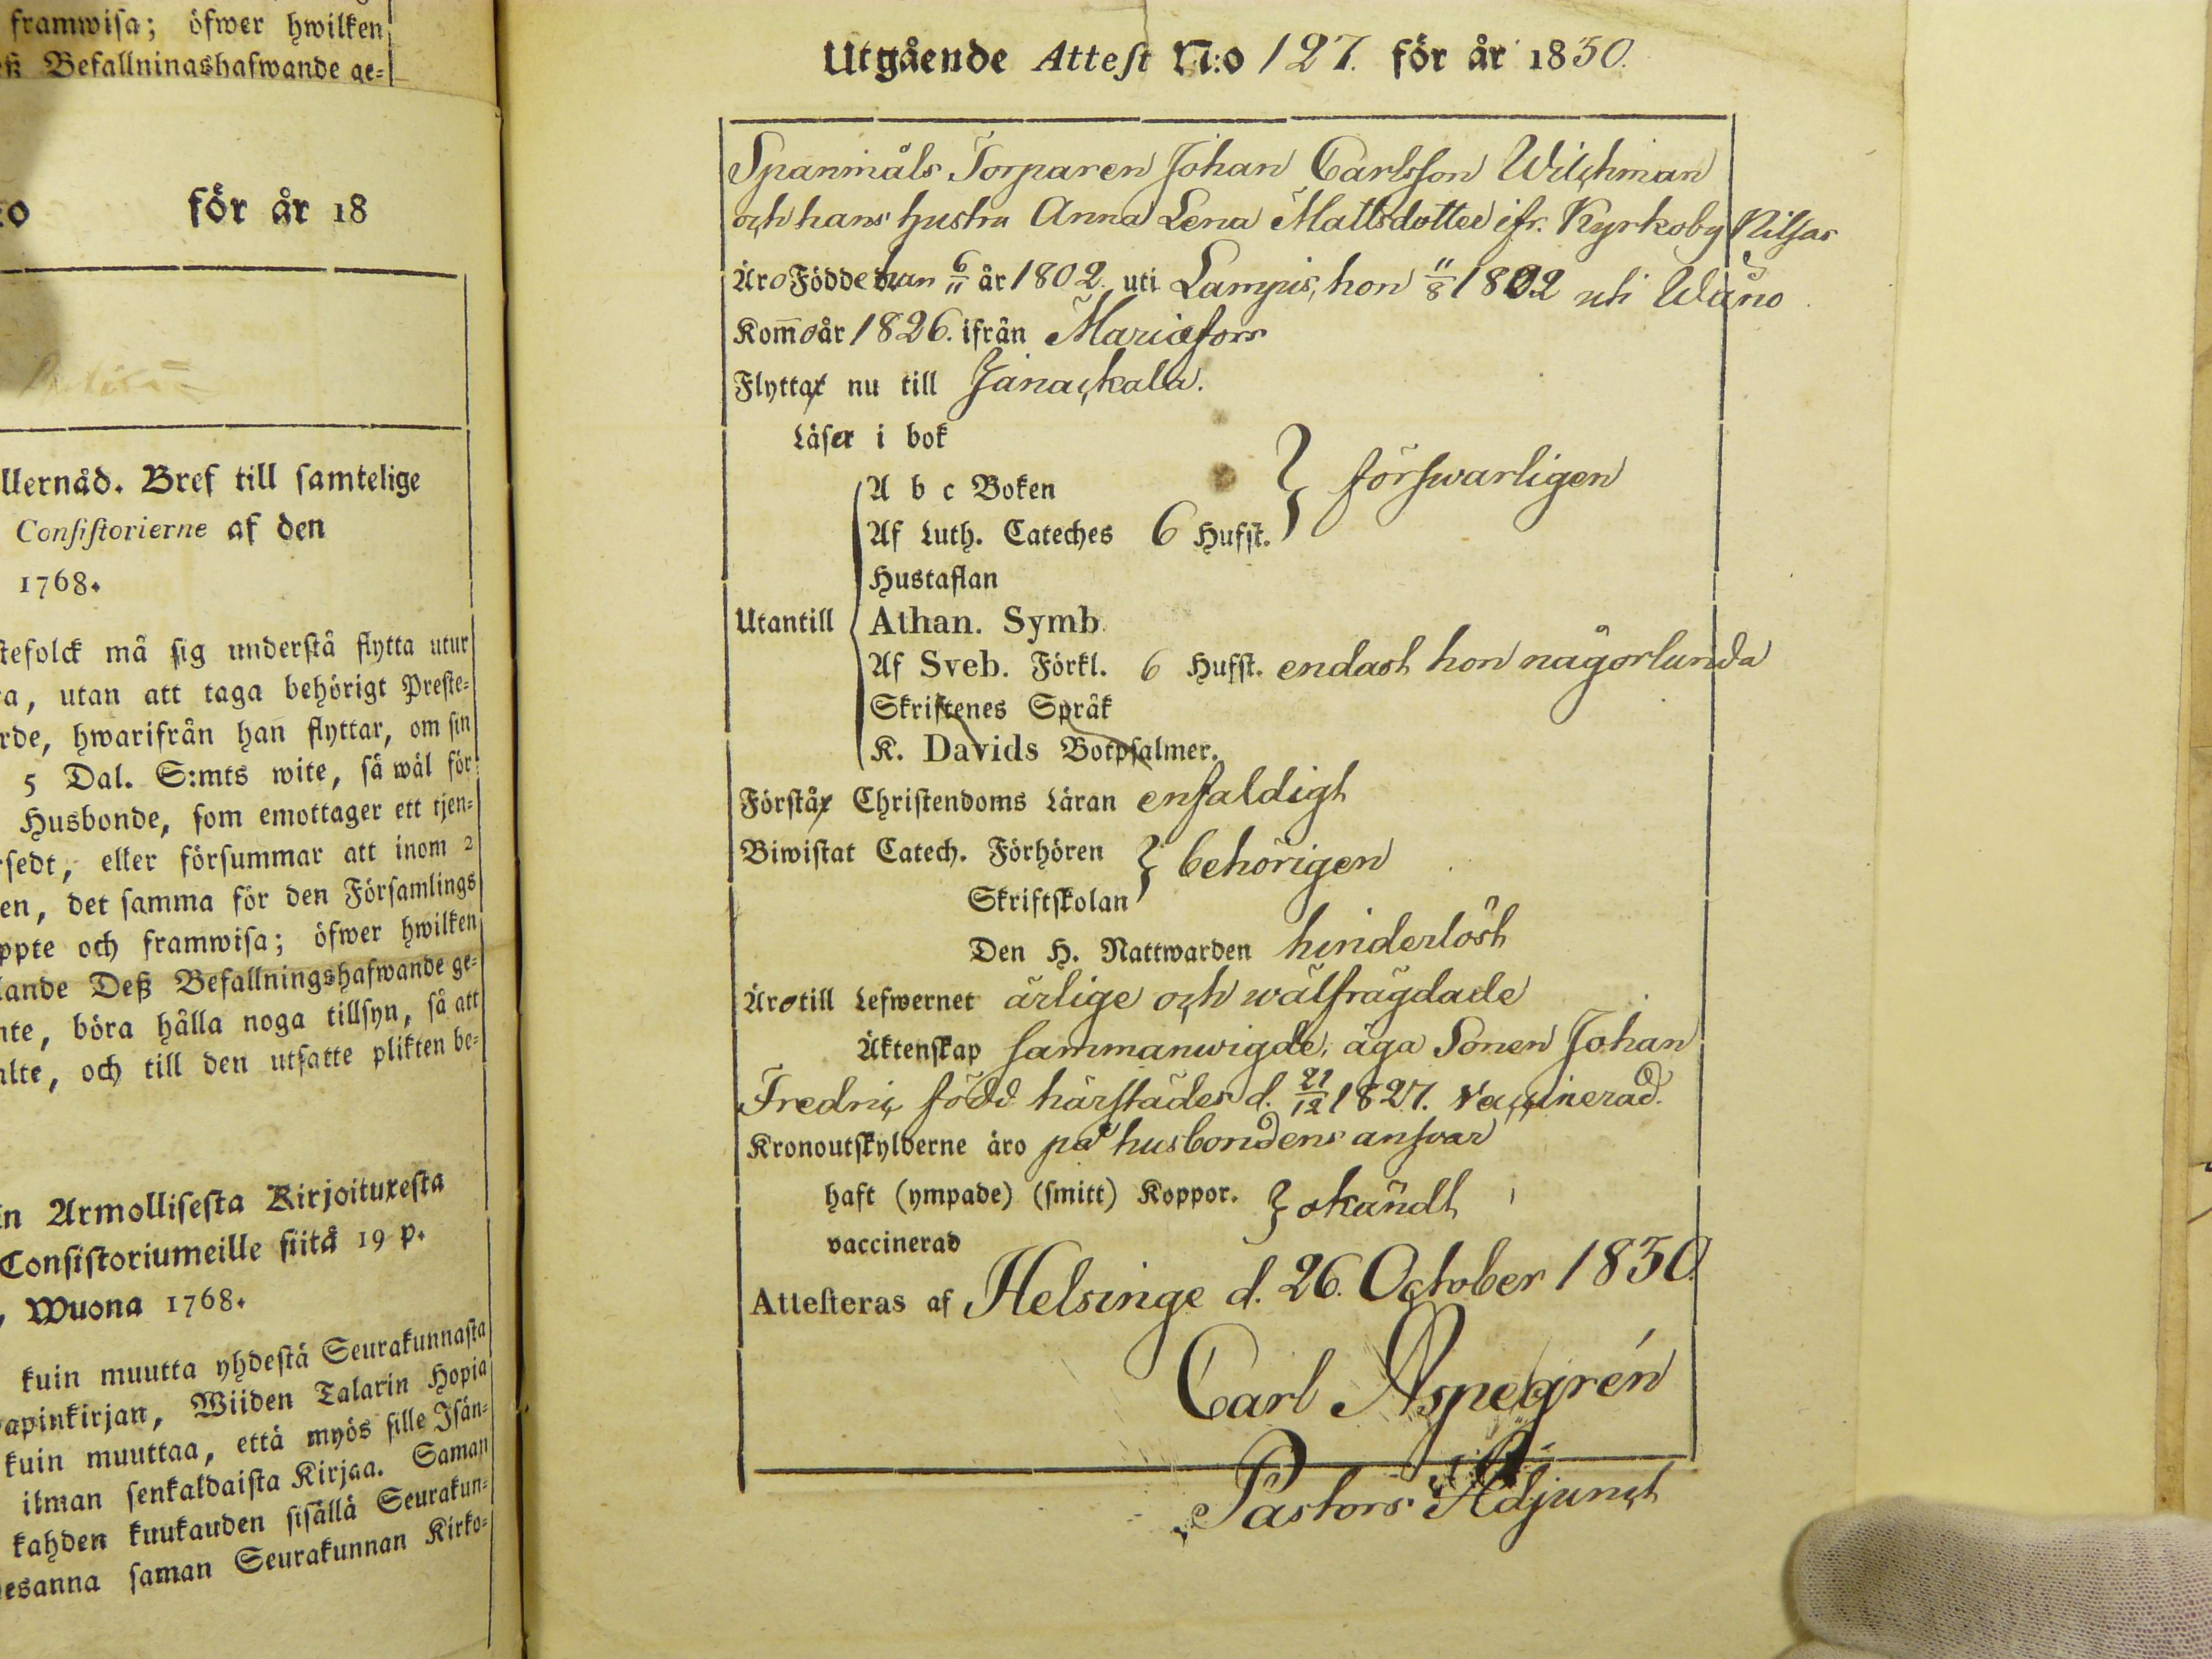 framwisa; öfwer hwilken
eß Befallningshafwande ge=
:o för år 18
llernåd. Bref till samtelige
Consistorierne af den
1768.
stefolck må sig understå flytta utur
ra, utan att taga behörigt Preste=
rde, hwarifrån han flyttar, om sin
5 Dal. S:mts wite, så wäl för
Husbonde, som emottager ett tjen=
rsedt, eller försummar att inom 2
en, det samma för den Församlings
ppte och framwisa; öfwer hwilken
lande Deß Befallningshafwande ge=
nte, böra hålla noga tillsyn, så att
alte, och till den utsatte plikten be=
in Armollisesta Kirjoituxesta
Consistoriumeille siitä 19 p.
, Wuona 1768.
kuin muutta yhdestä Seurakunnasta
apinkirjan, Wiiden Talarin Hopia
kuin muuttaa, että myös sille Isän=
ilman senkaldaista Kirjaa. Saman
kahden kuukauden sisällä Seurakun=
esanna saman Seurakunnan Kirko=
Utgående Attest N:o 127. för år 1830.
Spanmåls Torparen Johan Carlsson Wilchman
och hans hustru Anna Lena Mattsdotter ifr. Kyrkoby Nilsas
Äro Födde han 6/11 år 1802. uti Lampis, hon 11/8 1802 uti Wåno
Kommo år 1826. ifrån Mariæfors
Flytta nu till Janackala.
Läser i bok
A b c Boken } förswarligen
Af Luth. Cateches 6 Hufst.
Hustaflan
Utantill Athan. Symb.
Af Sveb. Förkl. 6 Hufst. endast hon någorlunda
Skriftenes Språk
K. Davids Botpsalmer.
Förstå Christendoms Läran enfaldigt
Biwistat Catech. Förhören } behörigen
Skriftskolan
Den H. Nattwarden hinderlöst
Äro till Lefwernet ärlige och wälfrägdade
Äktenskap sammanwigde, äga Sonen Johan
Fredric född härstädes d. 21/12 1827. vaccinerad.
Kronoutskylderne äro på husbondens answar
haft (ympade) (smitt) Koppor. } okändt
vaccinerad
Attesteras af Helsinge d. 26. October 1830.
Carl Aspegrén
Pastors Adjunct